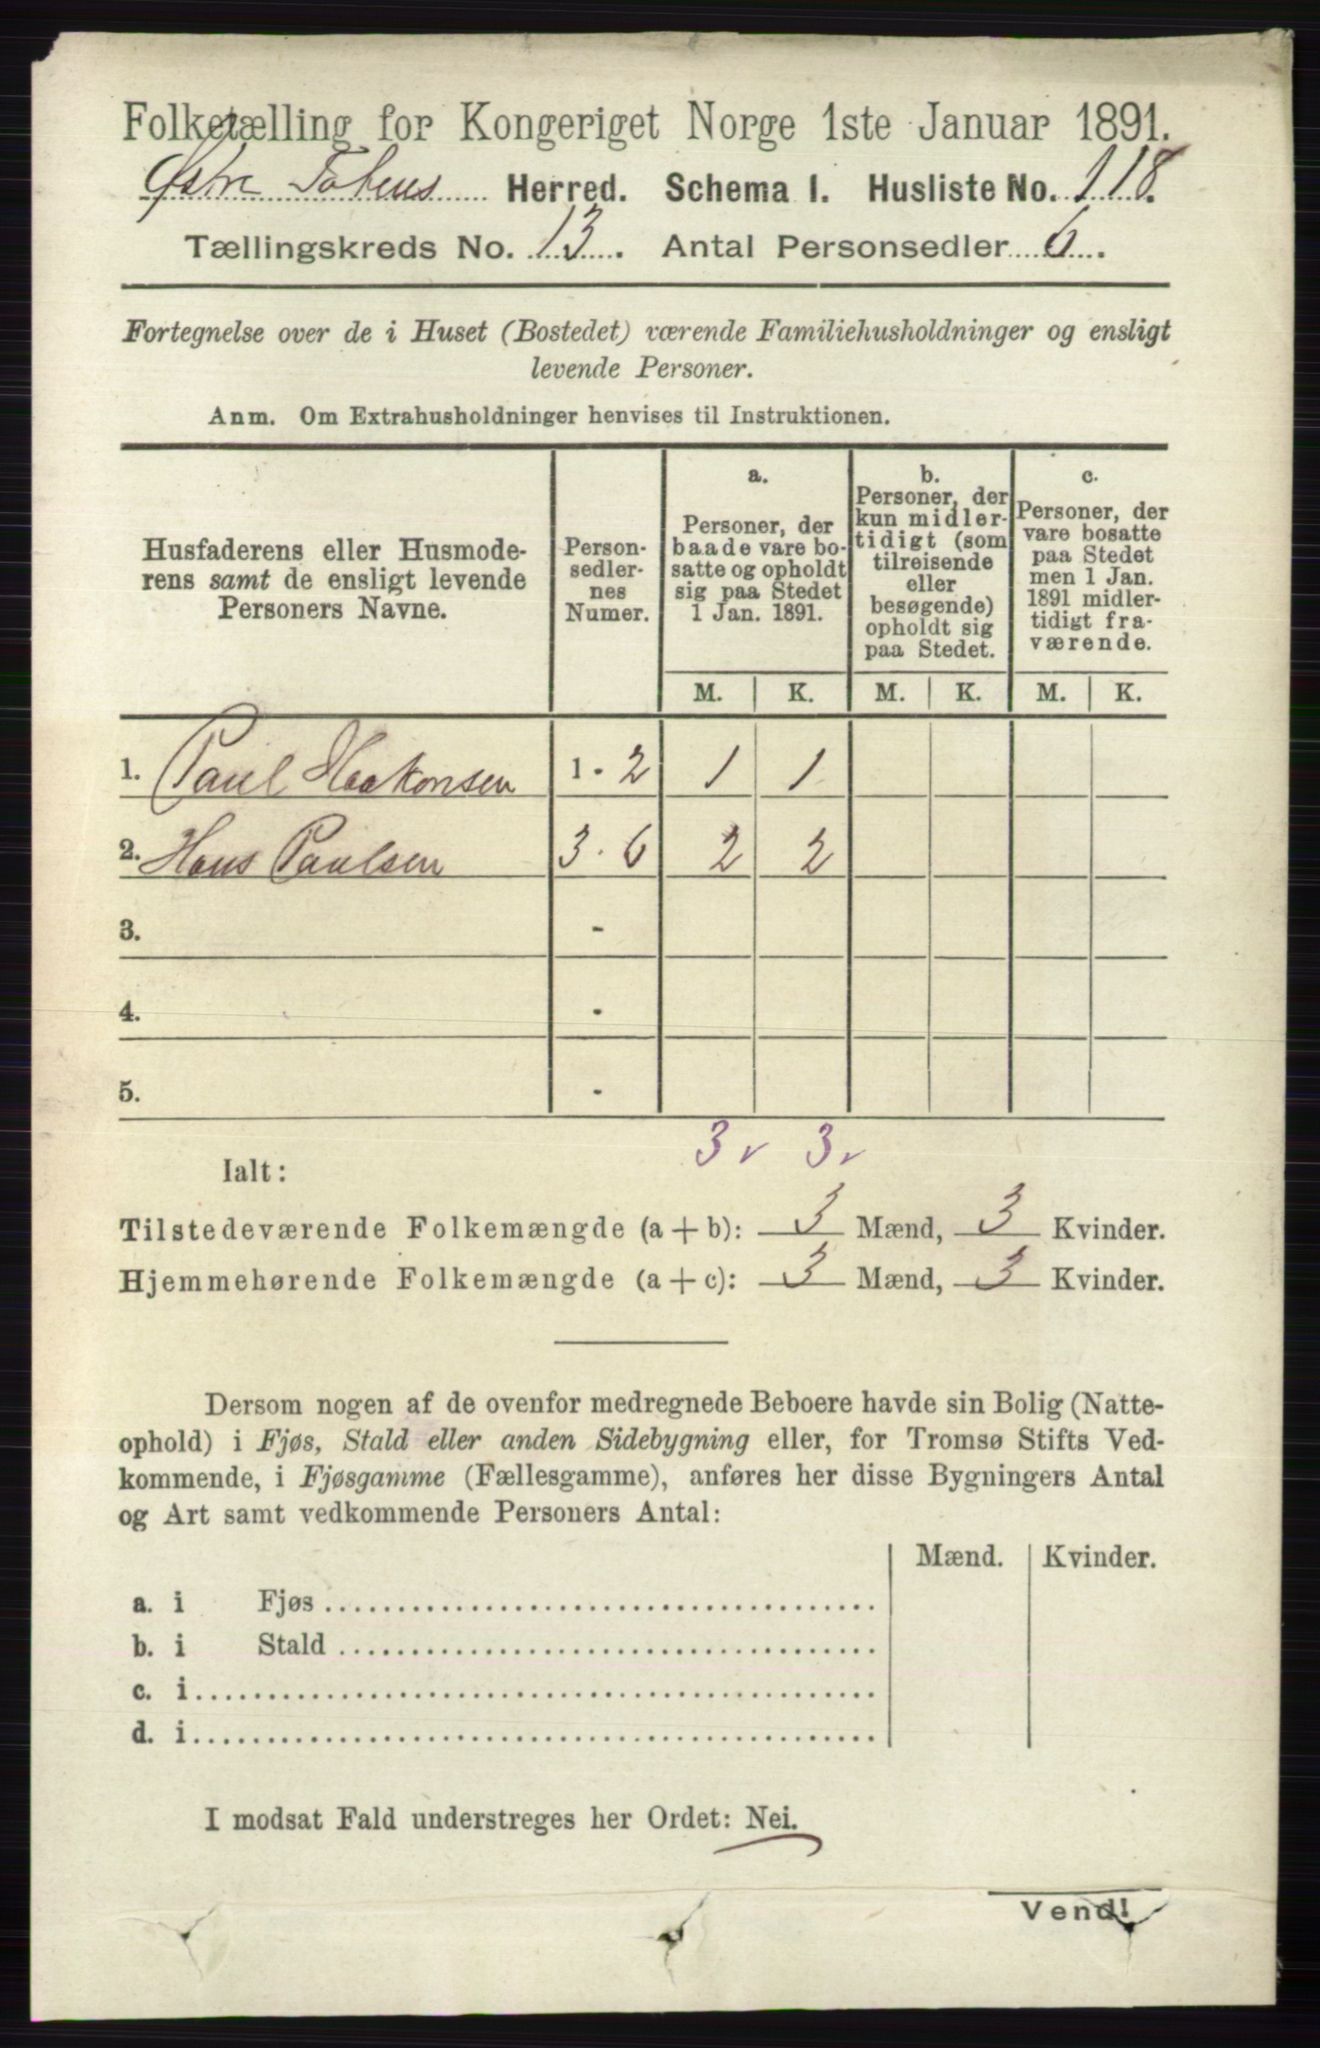 Folketælling for Kongeriget Norge 1ste Januar 1891.
Østre Totens Herred. Schema I. Husliste No. 118.
Tællingskreds No. 13. Antal Personsedler 6.
Fortegnelse over de i Huset (Bostedet) værende Familiehusholdninger og ensligt
levende Personer.
Anm. Om Extrahusholdninger henvises til Instruktionen.
Husfaderens eller Husmode-
rens samt de ensligt levende
Personers Navne.
Person-
sedler-
nes
Numer.
a.
Personer, der
baade vare bo-
satte og opholdt
sig paa Stedet
1 Jan. 1891.
b.
Personer, der
kun midler-
tidigt (som
tilreisende
eller
besøgende)
opholdt sig
paa Stedet.
c.
Personer, der
vare bosatte
paa Stedet
men 1 Jan.
1891 midler-
tidigt fra-
værende.
M. K. M. K. M. K.
1. Paul Haakonsen 1 - 2 1 1
2. Hans Paulsen 3 - 6 2 2
3. -
4. -
5. -
3 v 3 v
Ialt:
Tilstedeværende Folkemængde (a + b): 3 Mænd, 3 Kvinder.
Hjemmehørende Folkemængde (a + c): 3 Mænd, 3 Kvinder.
Dersom nogen af de ovenfor medregnede Beboere havde sin Bolig (Natte-
ophold) i Fjøs, Stald eller anden Sidebygning eller, for Tromsø Stifts Ved-
kommende, i Fjøsgamme (Fællesgamme), anføres her disse Bygningers Antal
og Art samt vedkommende Personers Antal:
Mænd. Kvinder.
a. i Fjøs
b. i Stald
c. i
d. i
I modsat Fald understreges her Ordet: Nei.
Vend!